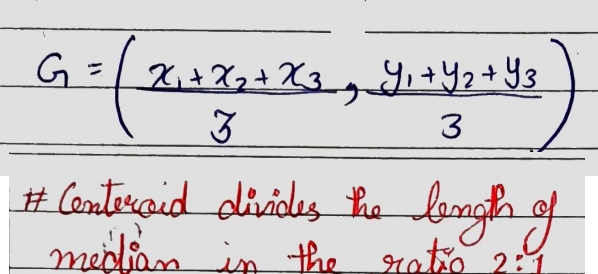 G = ( x₁ + x₂ + x₃ / 3 , y₁ + y₂ + y₃ / 3 )
# Centeroid divides the length of
median in the ratio 2:1